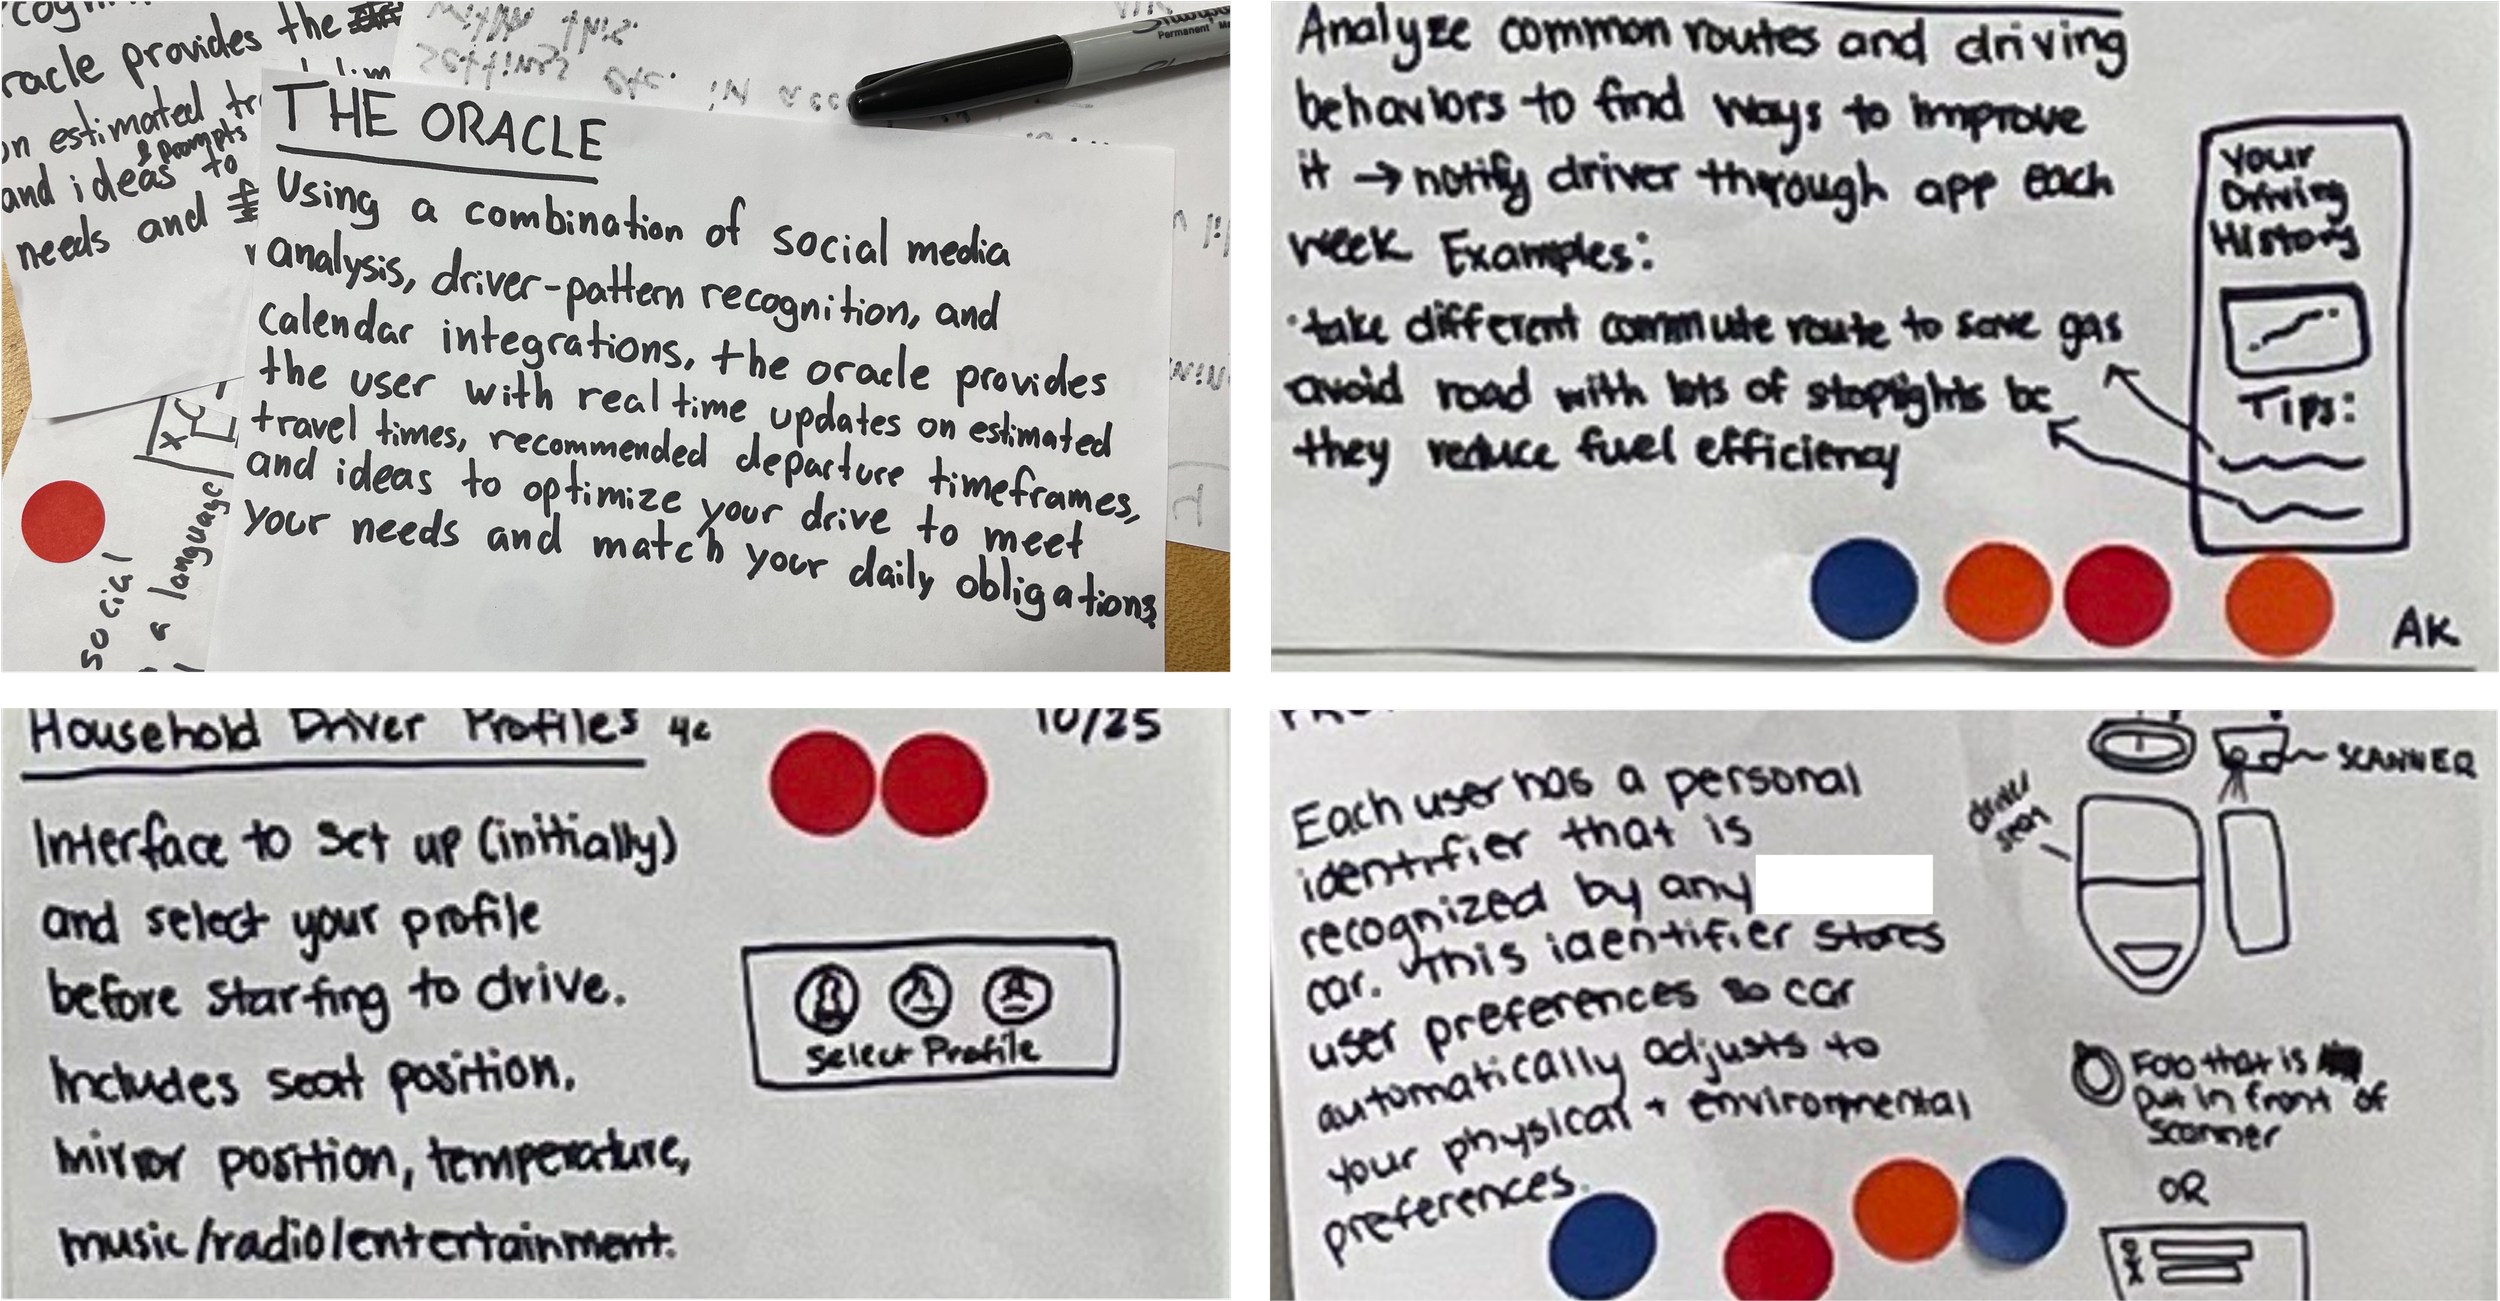 racle provides the
on estimated
& prompts
and ideas to
needs and
settings etc. in
Sharpie
Permanent
THE ORACLE
Using a combination of social media
analysis, driver-pattern recognition, and
calendar integrations, the oracle provides
the user with real time updates on estimated
travel times, recommended departure timeframes,
and ideas to optimize your drive to meet
your needs and match your daily obligations
social
a language
Analyze common routes and driving
behaviors to find ways to improve
it → notify driver through app each
week Examples:
· take different commute route to save gas
avoid road with lots of stoplights bc
they reduce fuel efficiency
Your
Driving
History
Tips:
AK
Household Driver Profiles 4c
10/25
Interface to set up (initially)
and select your profile
before starting to drive.
Includes seat position,
mirror position, temperature,
music/radio/entertainment.
Select Profile
Each user has a personal
identifier that is
recognized by any
car. This identifier stores
user preferences so car
automatically adjusts to
your physical + environmental
preferences.
SCANNER
driver
seat
Fob that is
put in front of
scanner
OR